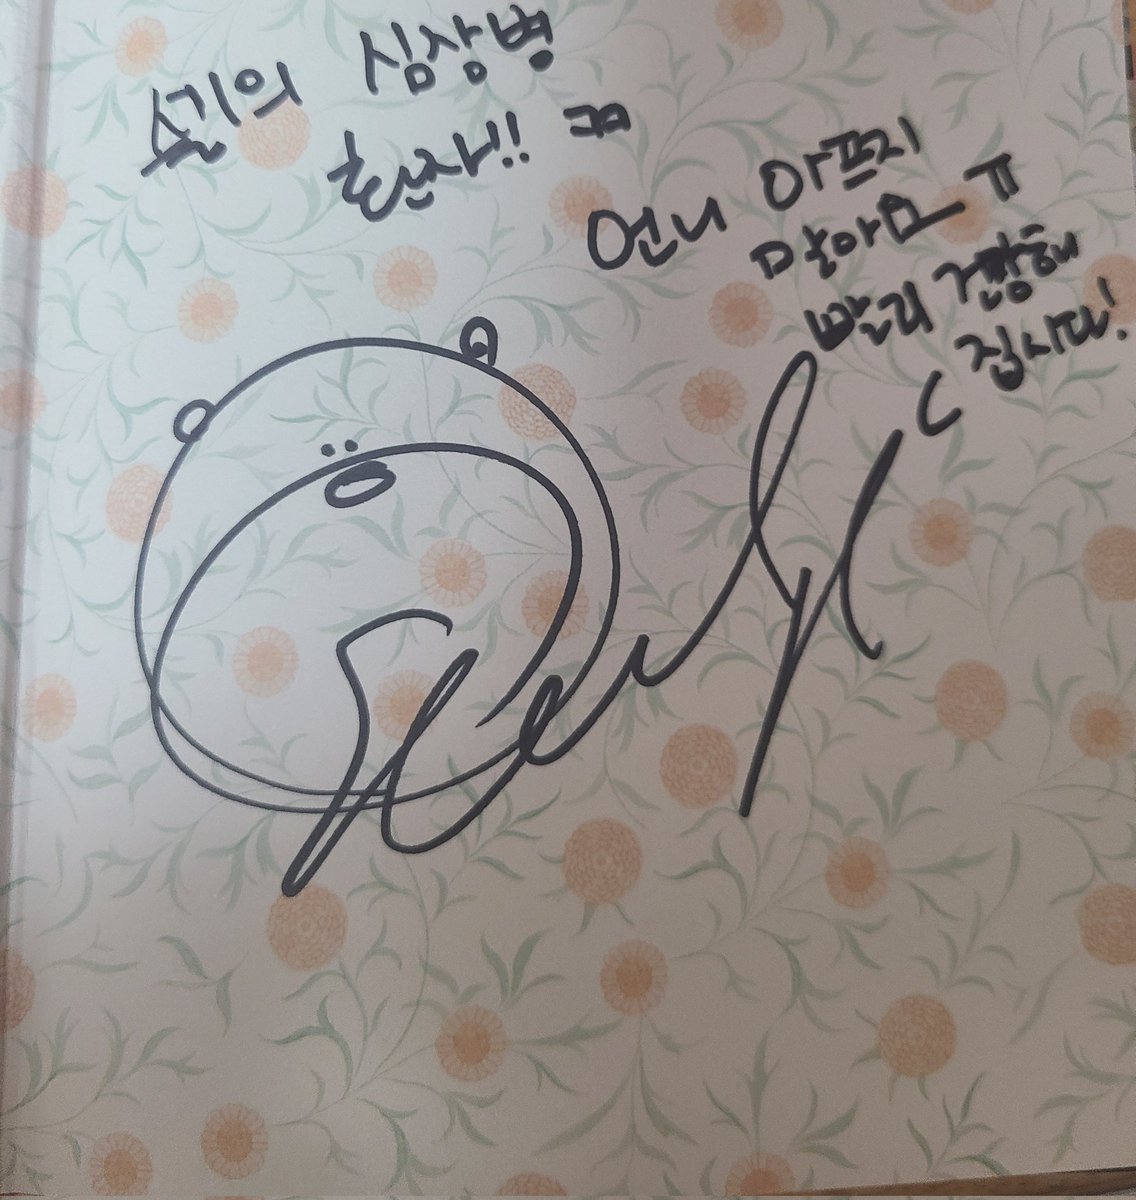 슬기의 심상병
환자!! ㅋㅋ
언니 아프지
말아요 ㅠ
빨리 건강해
집시다!